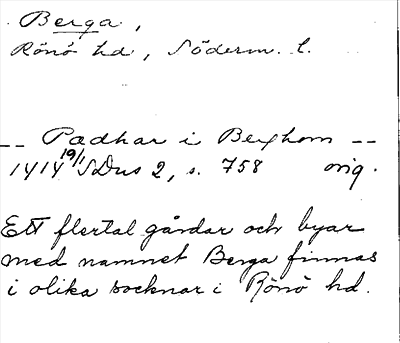 Berga,
Rönö hd, Söderm. l.
-- Pædhar i Berghom --
1414 19/1 SDns 2, s. 758 orig.
Ett flertal gårdar och byar
med namnet Berga finnas
i olika socknar i Rönö hd.